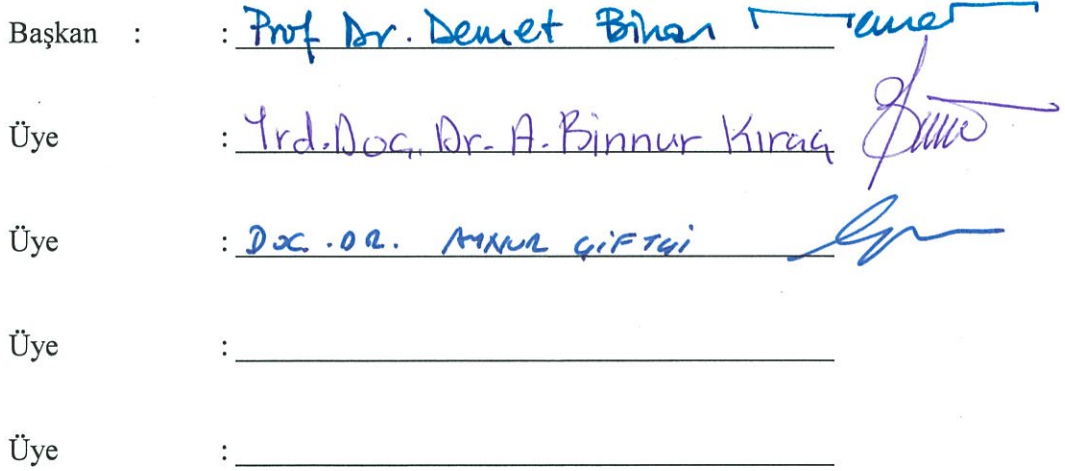 Başkan : : Prof Dr. Demet Binan
Üye : Yrd.Doç.Dr. A. Binnur Kıraç
Üye : Doç. DR. AYNUR ÇİFTÇİ
Üye :
Üye :